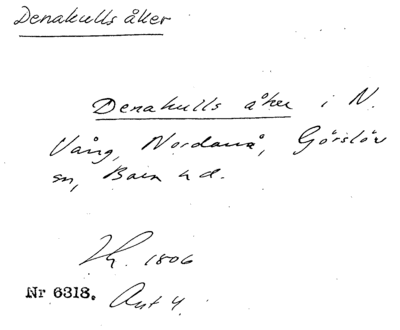 Denakulls åker
Denakulls åker i N.
Vång, Nordanå, Görslöv
sn, Bara hd.
1806
Nr 6318. Akt 4.